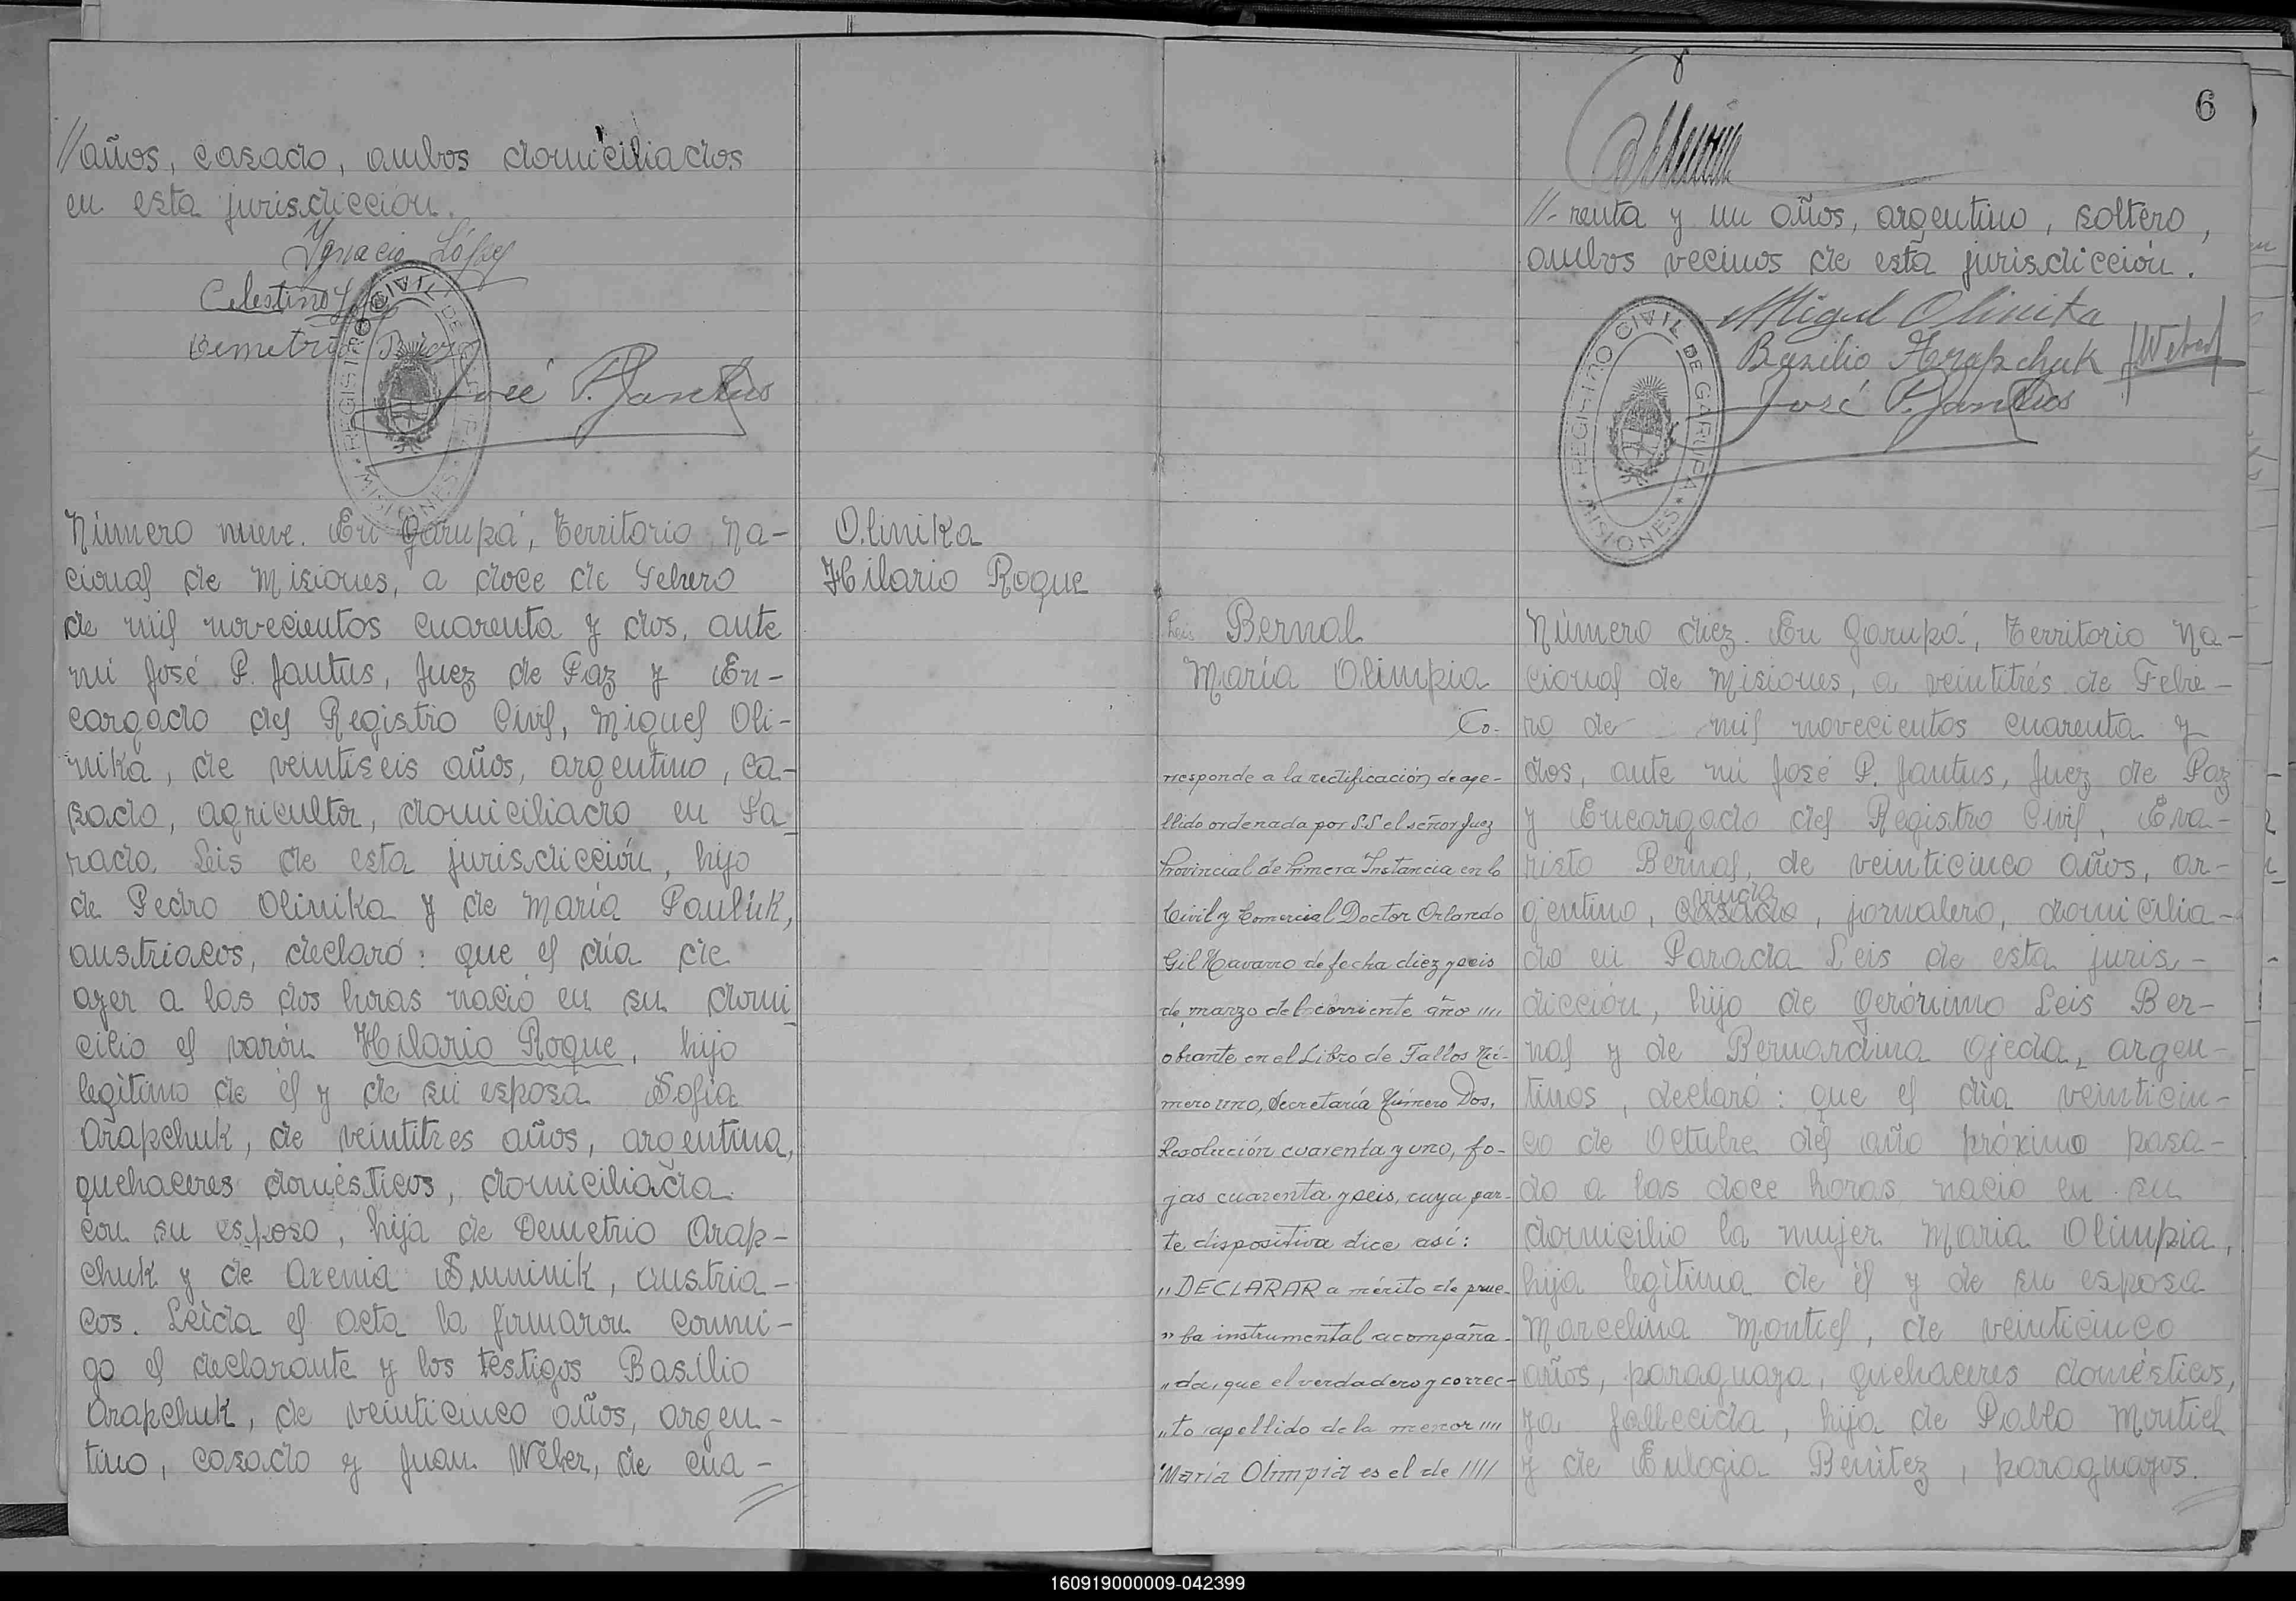 //años, casado, ambos domiciliados
en esta jurisdicción.
Ygnacio López
Celestino
Demetrio
José P. Jantus
REGISTRO CIVIL DE GARUPA
MISIONES
Número nueve. En Garupá, Territorio Na-
cional de Misiones, a doce de Febrero
de mil novecientos cuarenta y dos, ante
mi José P. Jantus, Juez de Paz y En-
cargado del Registro Civil, Miguel Oli-
nika, de veintiseis años, argentino, ca-
sado, agricultor, domiciliado en Pa-
rada Leis de esta jurisdicción, hijo
de Pedro Olinika y de María Pauluk,
austriacos, declaró: que el día de
ayer a las dos horas nació en su domi-
cilio el varón Hilario Roque, hijo
legítimo de él y de su esposa Sofía
Arapchuk, de veintitres años, argentina,
quehaceres domésticos, domiciliada
con su esposo, hija de Demetrio Arap-
chuk y de Axenia Sminik, austria-
cos. Leída el acta la firmaron conmi-
go el declarante y los testigos Basilio
Arapchuk, de veinticinco años, argen-
tino, casado y Juan Weber, de cua-
Olinika
Hilario Roque
6
//-renta y un años, argentino, soltero,
ambos vecinos de esta jurisdicción.
Miguel Olinika
Basilio Arapchuk JWeber
José P. Jantus
REGISTRO CIVIL DE GARUPA
MISIONES
Leis Bernal
María Olimpia
Co-
rresponde a la rectificación de ape-
llido ordenada por S.S el señor Juez
Provincial de Primera Instancia en lo
Civil y Comercial Doctor Orlando
Gil Navarro de fecha diez y seis
de marzo del corriente año ////
obrante en el Libro de Fallos Nú-
mero uno, Secretaría Número Dos,
Resolución cuarenta y uno, fo-
jas cuarenta y seis, cuya par-
te dispositiva dice así:
"DECLARAR a mérito de prue-
"ba instrumental acompaña-
"da, que el verdadero y correc-
"to apellido de la menor ////
"María Olimpia es el de ////
Número diez. En Garupá, Territorio Na-
cional de Misiones, a veintitrés de Febre-
ro de mil novecientos cuarenta y
dos, ante mi José P. Jantus, Juez de Paz
y Encargado del Registro Civil, Eva-
risto Bernal, de veinticinco años, ar-
gentino, viudo, jornalero, domicilia-
do en Parada Leis de esta juris-
dicción, hijo de Gerónimo Leis Ber-
nal y de Bernardina Ojeda, argen-
tinos, declaró: que el día veinticin-
co de Octubre del año próximo pasa-
do a las doce horas nació en su
domicilio la mujer María Olimpia,
hija legítima de él y de su esposa
Marcelina Montiel, de veinticinco
años, paraguaya, quehaceres domésticos,
ya fallecida, hija de Pablo Montiel
y de Eulogia Benitez, paraguayos.
160919000009-042399